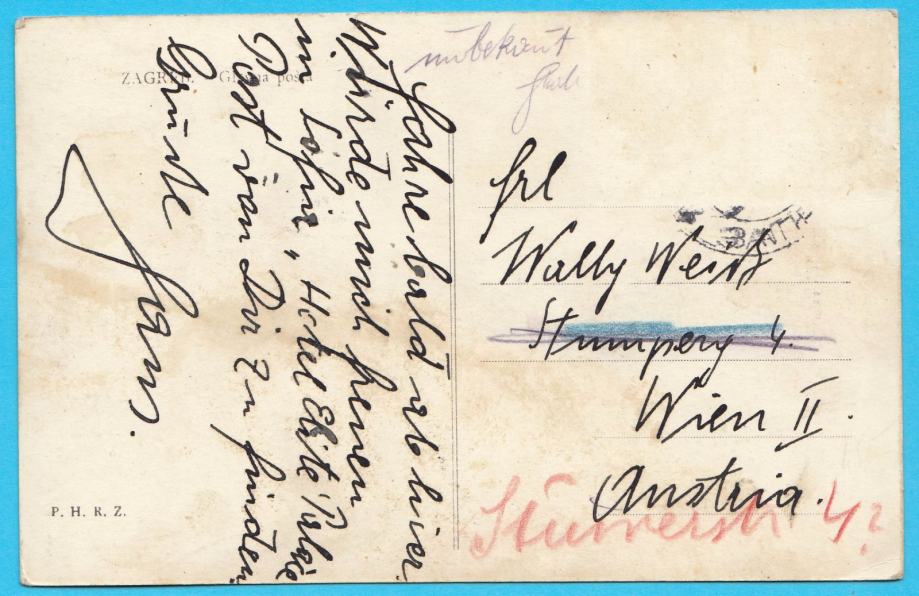 ZAGREB. Glavna pošta
Fahre bald ab hier.
Würde mich freuen
in Sofia, "Hotel Elite Palace"
Post von Dir zu finden
Grüße
Hans.
unbekannt
Frl
Wally Weiß
Stumperg 4.
Wien II.
Austria.
Stuwerstr 4?
P. H. R. Z.